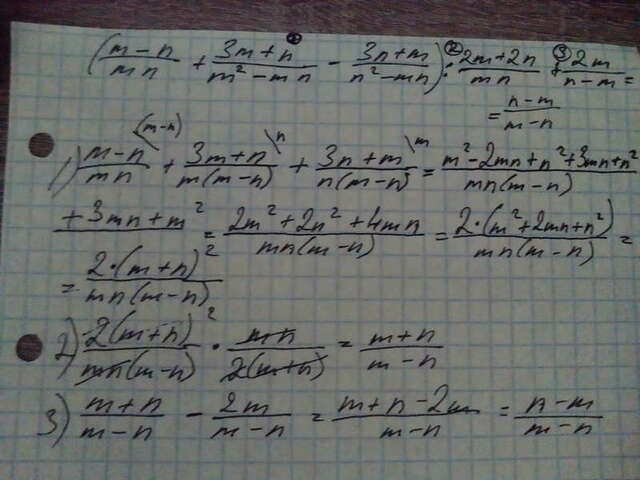 (m-n/mn + 3m+n/m²-mn - 3n+m/n²-mn) : 2m+2n/mn + 2m/n-m =
① ② ③
= n-m/m-n
1) m-n/mn \(m-n) + 3m+n/m(m-n) \n + 3n+m/n(m-n) \m = m²-2mn+n²+3mn+n²/mn(m-n)
+3mn+m² = 2m²+2n²+4mn/mn(m-n) = 2·(m²+2mn+n²)/mn(m-n) =
= 2·(m+n)²/mn(m-n)
2) 2(m+n)²/mn(m-n) · mn/2(m+n) = m+n/m-n
3) m+n/m-n - 2m/m-n = m+n-2m/m-n = n-m/m-n